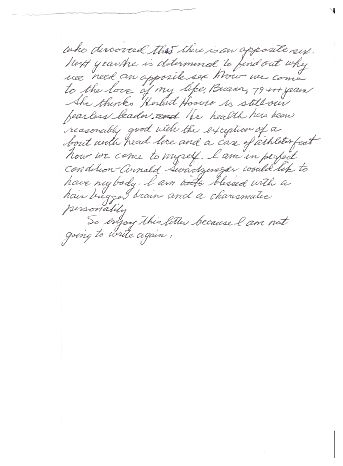 who discovered that there is an opposite sex.
Next year he is determined to find out why
we need an opposite sex Now we come
to the love of my life, 79 +++ years
She thinks Herbert Hoover is still our
fearless leader. Her health has been
reasonably good with the exception of a
bout with head lice and a case of athletes feet
Now we come to myself. I am in perfect
condition - Arnold would like to
have my body. I am blessed with a
huge brain and a charismatic
personality
So enjoy this letter because I am not
going to write again.